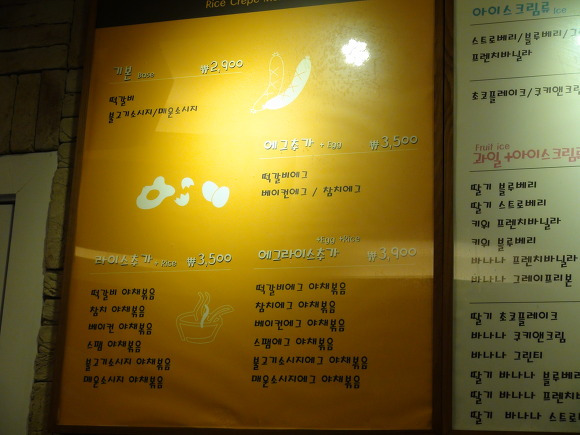 Rice Crepe
기본 Base ₩2,900
떡갈비
불고기소시지/매운소시지
에그추가 + Egg ₩3,500
떡갈비에그
베이컨에그 / 참치에그
라이스추가 + Rise ₩3,500
떡갈비 야채볶음
참치 야채볶음
베이컨 야채볶음
스팸 야채볶음
불고기소시지 야채볶음
매운소시지 야채볶음
+Egg +Rice
에그라이스추가 ₩3,900
떡갈비에그 야채볶음
참치에그 야채볶음
베이컨에그 야채볶음
스팸에그 야채볶음
불고기소시지에그 야채볶음
매운소시지에그 야채볶음
아이스크림류 Ice
스트로베리/블루베리/그
프렌치바닐라
초코플레이크/쿠키앤크림
Fruit ice
과일 +아이스크림류
딸기 블루베리
딸기 스트로베리
키위 프렌치바닐라
키위 블루베리
바나나 프렌치바닐라
바나나 그레이프리본
딸기 초코플레이크
바나나 쿠키앤크림
바나나 그린티
딸기 바나나 블루베
딸기 바나나 프렌치
딸기 바나나 스트로